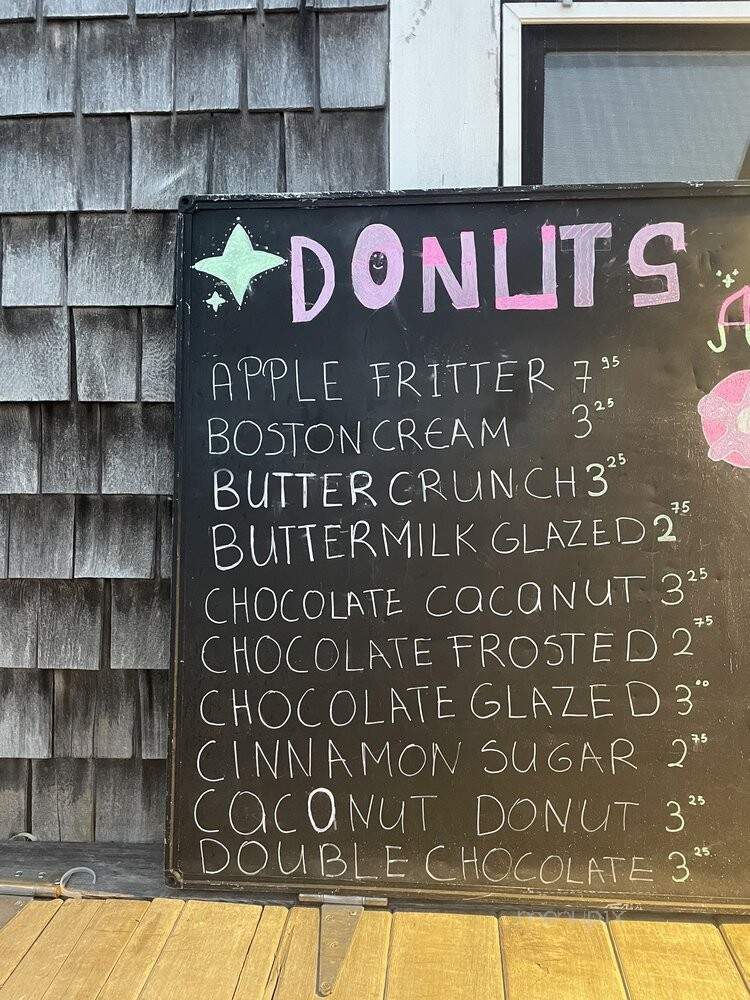 DONUTS
APPLE FRITTER 7 95
BOSTON CREAM 3 25
BUTTERCRUNCH 3 25
BUTTERMILK GLAZED 2 75
CHOCOLATE COCANUT 3 25
CHOCOLATE FROSTED 2 75
CHOCOLATE GLAZED 3 00
CINNAMON SUGAR 2 75
COCONUT DONUT 3 25
DOUBLE CHOCOLATE 3 25